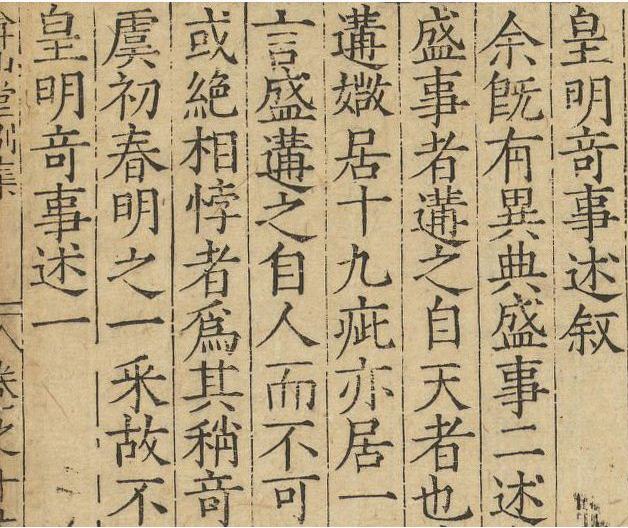 皇明竒事述叙
余旣有異典盛事二述
盛事者遘之自天者也
遘媺居十九疵亦居一
言盛遘之自人而不可
或絶相悖者爲其稍竒
虞初春明之一采故不
皇明竒事述一
弇山堂别集
卷之十